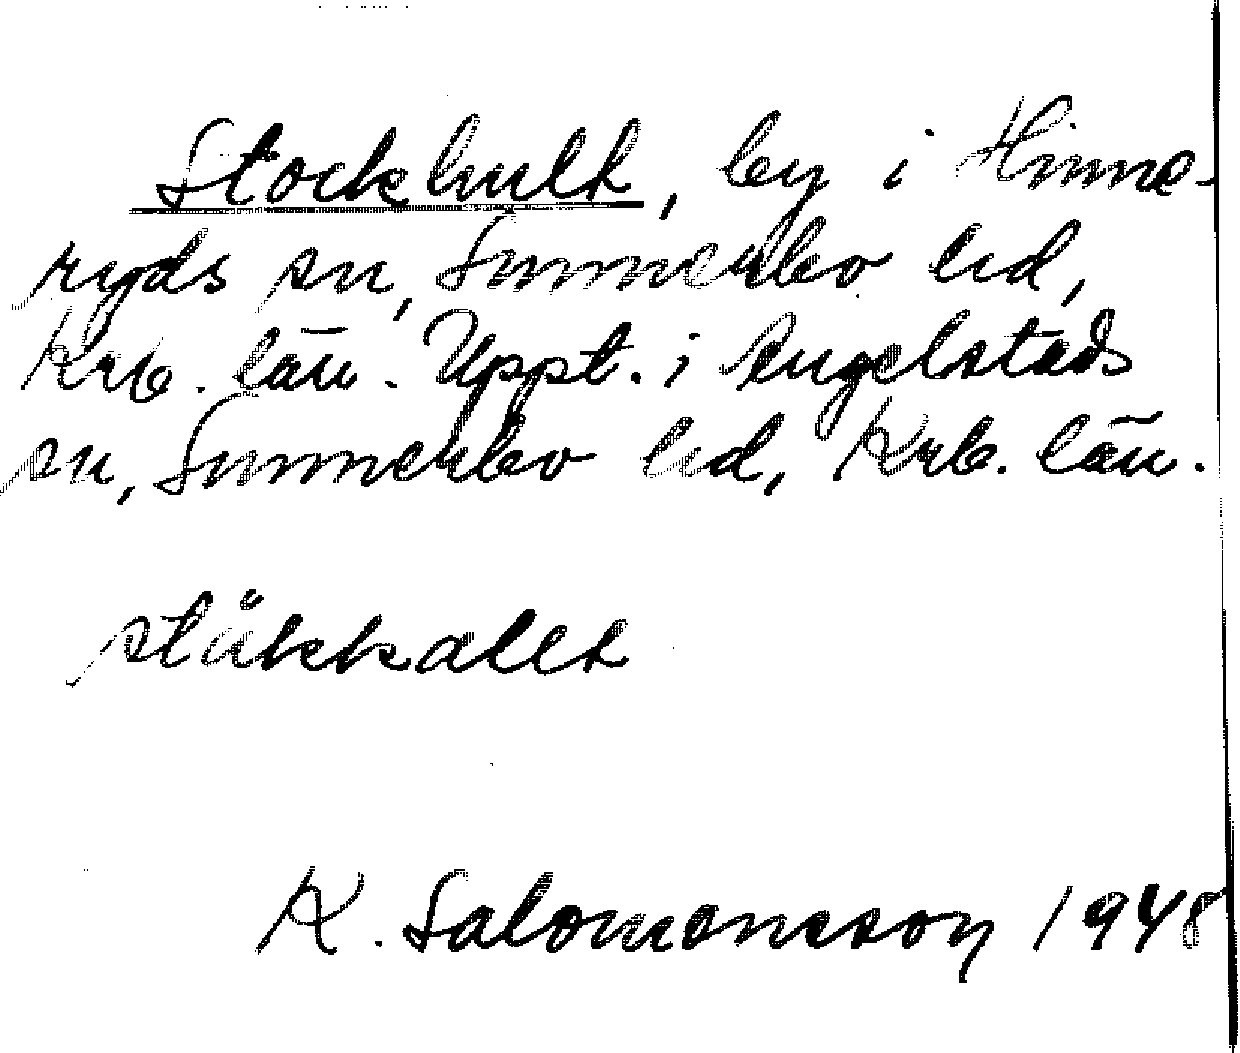 Stockhult, by i Hinne-
ryds sn, Sunnerbo hd,
Krb. län. Uppt. i Angelstads
sn, Sunnerbo hd, Krb. län.
ståkkallt
K. Salomonsson 1948